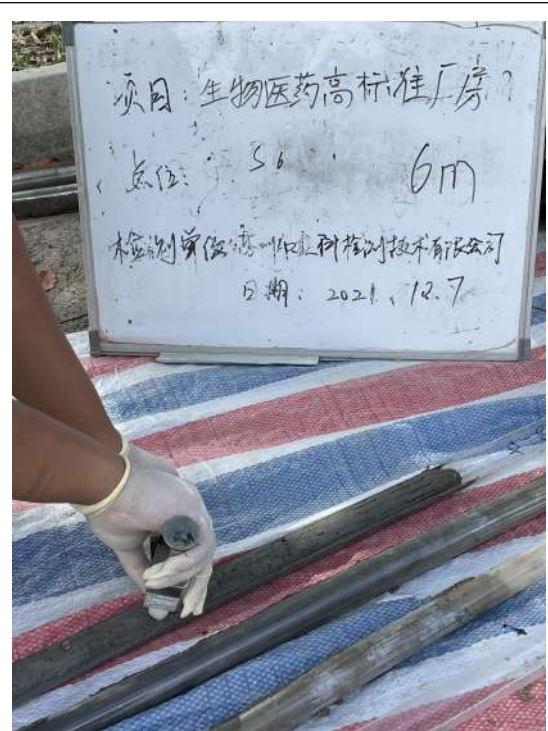 项目：生物医药高标准厂房
点位： S6 6m
检测单位：科检测技术有限公司
日期： 2021、12.7